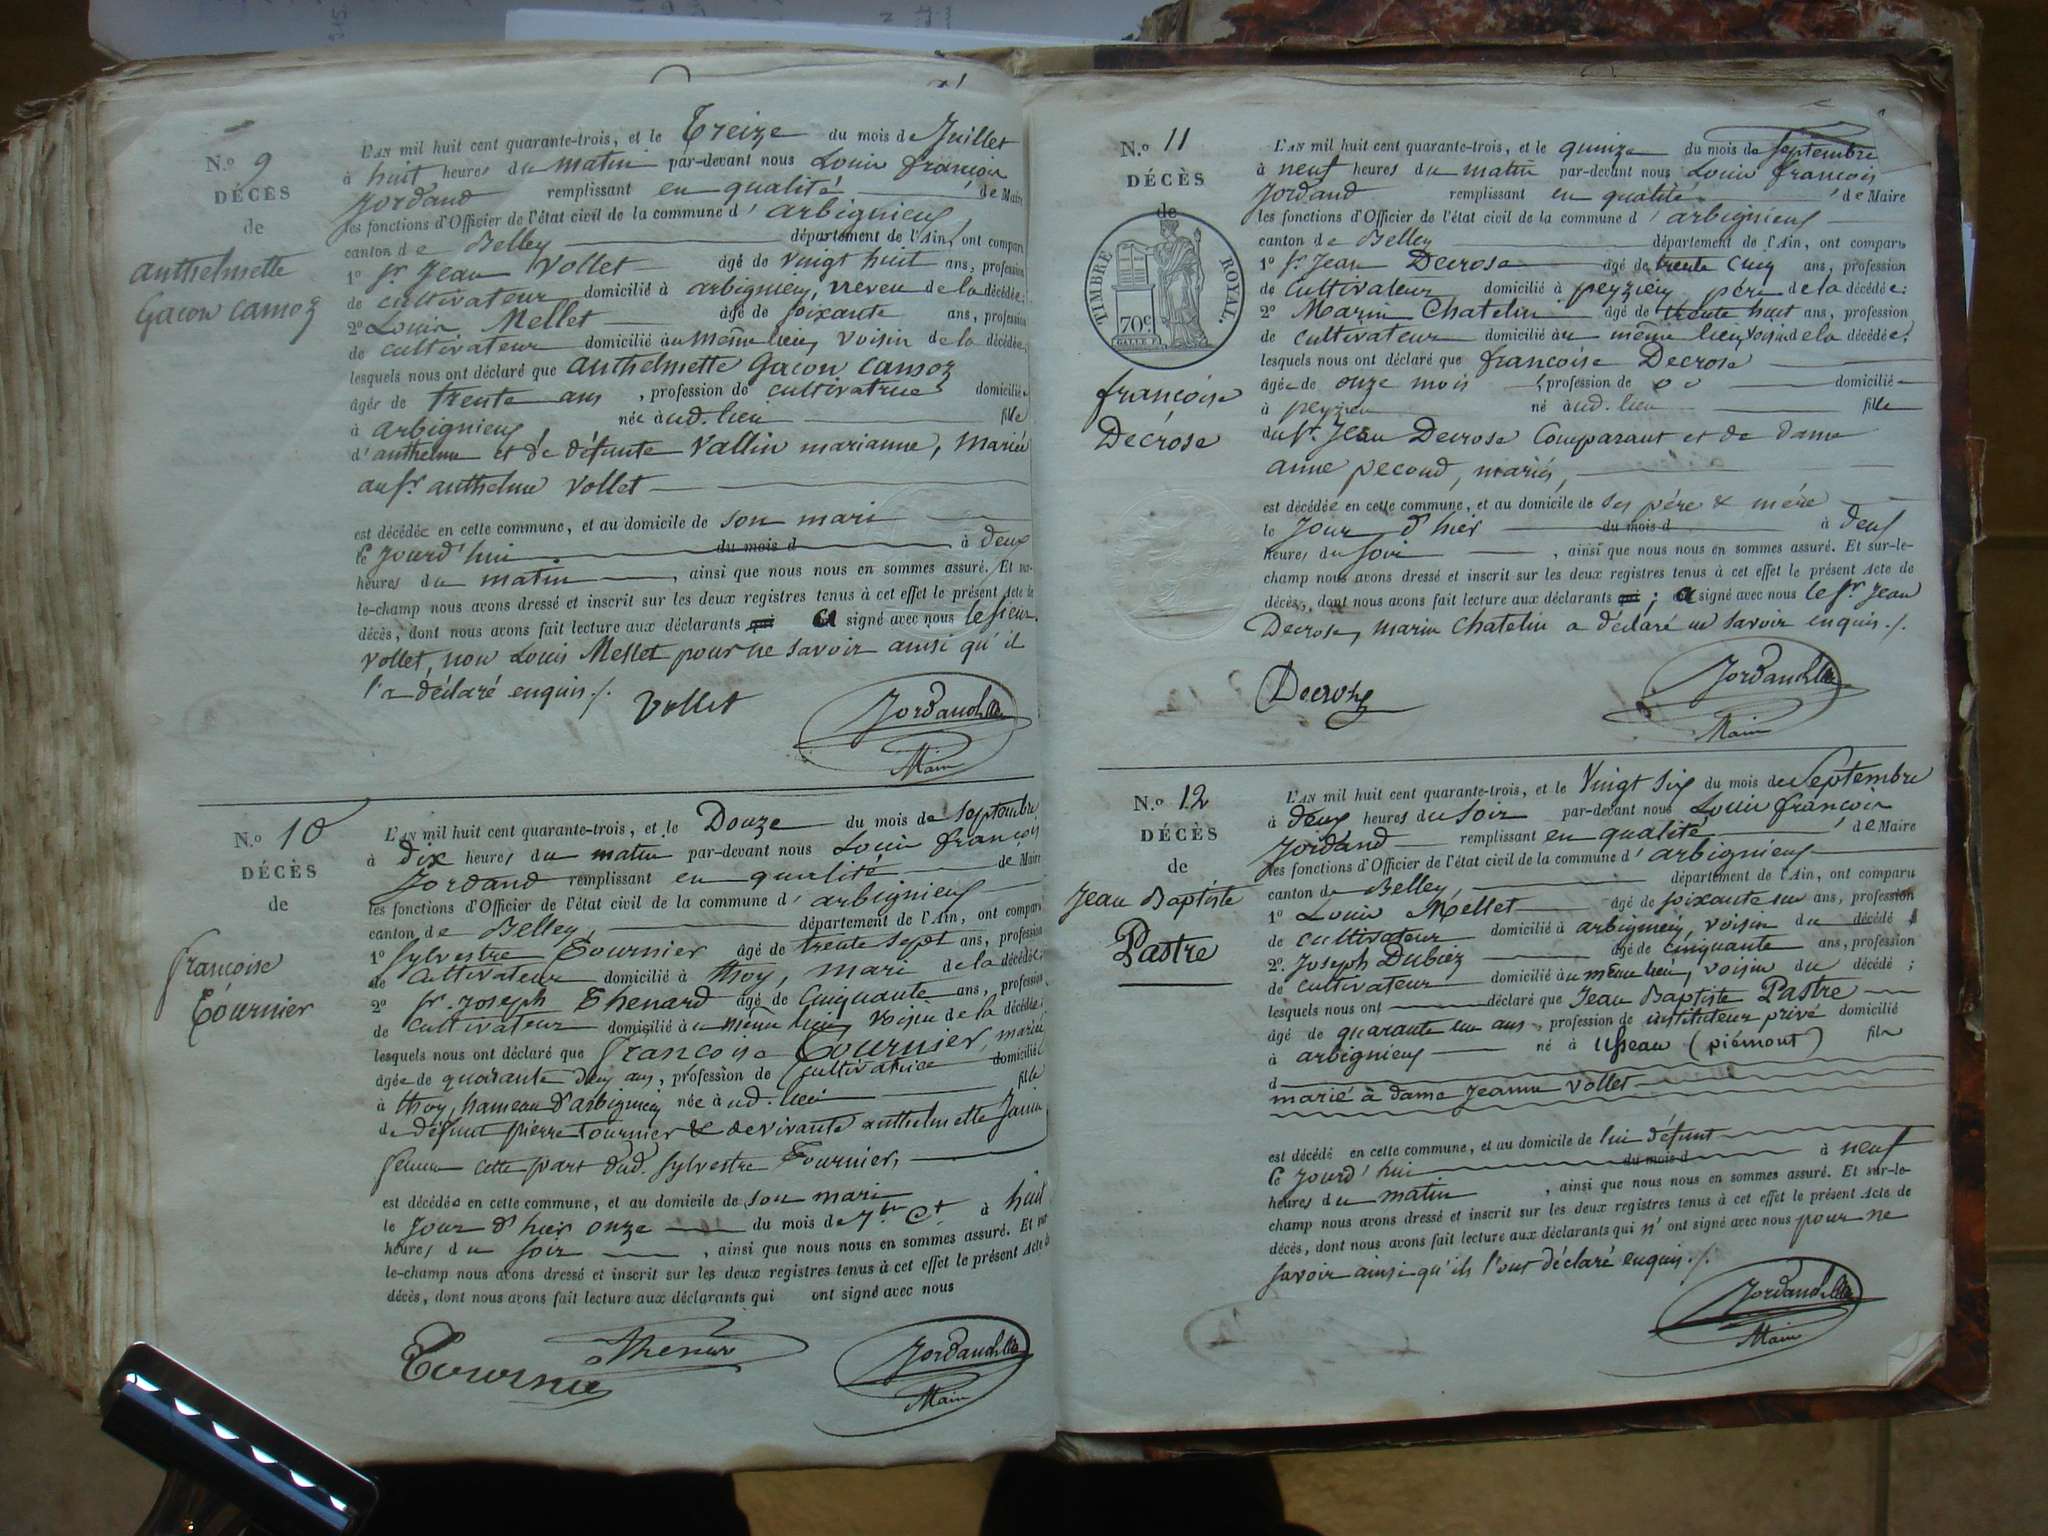 N.º 9
DÉCÈS
de
anthelmette
Gacon camoz
L'AN mil huit cent quarante-trois, et le Treize du mois de Juillet
à huit heures du matin par-devant nous Louis françois
Jordand remplissant en qualité de Maire
les fonctions d'Officier de l'état civil de la commune d'arbignieux
canton de Belley département de l'Ain, ont comparu
1º Sr Jean Vollet âgé de vingt huit ans, profession
de cultivateur domicilié à arbignieux, neveu de la décédée;
2º Louis Mellet âgé de soixante ans, profession
de cultivateur domicilié au même lieu, voisin de la décédée,
lesquels nous ont déclaré que anthelmette Gacon camoz
âgée de trente ans, profession de cultivatrice domiciliée
à arbignieux, née àud. lieu fille
d'anthelme et de défunte Vallin marianne, mariée
au sr anthelme Vollet
est décédée en cette commune, et au domicile de son mari
le Jourd'hui du mois d à deux
heures du matin, ainsi que nous nous en sommes assuré. Et sur-
le-champ nous avons dressé et inscrit sur les deux registres tenus à cet effet le présent Acte de
décès, dont nous avons fait lecture aux déclarants qui a signé avec nous le sieur
Vollet, non Louis Mellet pour ne savoir ainsi qu'il
l'a déclaré enquis ./.
Vollet
Jordand
Maire
N.º 10
DÉCÈS
de
françoise
Tournier
L'AN mil huit cent quarante-trois, et le Douze du mois de septembre
à dix heures du matin par-devant nous Louis françois
Jordand remplissant en qualité de Maire
les fonctions d'Officier de l'état civil de la commune d'arbignieux
canton de Belley, département de l'Ain, ont comparu
1º Sylvestre Tournier âgé de trente sept ans, profession
de cultivateur domicilié à thoy, mari de la décédée;
2º Sr Joseph Thenard âgé de Cinquante ans, profession
de cultivateur domicilié au même lieu, voisin de la décédée;
lesquels nous ont déclaré que françoise Tournier, mariée
âgée de quarante deux ans, profession de Cultivatrice domiciliée
à thoy, hameau d'arbignieux née àud. lieu fille
de défunt pierre Tournier & de vivante anthelmette Janin
femme cette part dud. Sylvestre Tournier,
est décédée en cette commune, et au domicile de son mari
le Jour d'hier onze du mois de 7bre Ct à huit
heures du soir, ainsi que nous nous en sommes assuré. Et sur
le-champ nous avons dressé et inscrit sur les deux registres tenus à cet effet le présent Acte de
décès, dont nous avons fait lecture aux déclarants qui ont signé avec nous
Tournier
Thenard
Jordand
Maire
N.º 11
DÉCÈS
de
TIMBRE ROYAL.
70c
françoise
Decrose
L'AN mil huit cent quarante-trois, et le quinze du mois de septembre
à neuf heures du matin par-devant nous Louis françois
Jordand remplissant en qualité de Maire
les fonctions d'Officier de l'état civil de la commune d'arbignieux
canton de Belley département de l'Ain, ont comparu
1º Sr Jean Decrose âgé de trente cinq ans, profession
de Cultivateur domicilié à peyzieu père de la décédée:
2º Marin Chatelin âgé de trente huit ans, profession
de cultivateur domicilié au même lieu, voisin de la décédée;
lesquels nous ont déclaré que françoise Decrose
âgée de onze mois, profession de domiciliée
à peyzieu né àud. lieu fille
du Sr Jean Decrose Comparant et de dame
anne pecoud, mariés,
est décédée en cette commune, et au domicile de ses père & mère
le Jour d'hier du mois d à deux
heures du soir, ainsi que nous nous en sommes assuré. Et sur-le-
champ nous avons dressé et inscrit sur les deux registres tenus à cet effet le présent Acte de
décès, dont nous avons fait lecture aux déclarants qui; a signé avec nous le Sr Jean
Decrose, marin Chatelin a déclaré ne savoir enquis ./.
Decrose
Jordand
Maire
N.º 12
DÉCÈS
de
Jean Baptiste
Pastre
L'AN mil huit cent quarante-trois, et le Vingt six du mois de Septembre
à deux heures du soir par-devant nous Louis françois
Jordand remplissant en qualité de Maire
les fonctions d'Officier de l'état civil de la commune d'arbignieux
canton de Belley, département de l'Ain, ont comparu
1º Louis Mellet âgé de soixante un ans, profession
de cultivateur domicilié à arbignieux, voisin du décédé
2º. Joseph Dubiez âgé de cinquante ans, profession
de cultivateur domicilié au même lieu, voisin du décédé;
lesquels nous ont déclaré que Jean Baptiste Pastre
âgé de quarante un ans, profession de instituteur privé domicilié
à arbignieux né à usseau (piémont) fils
d
marié à dame Jeanne Vollet
est décédé en cette commune, et au domicile de lui défunt
le Jourd'hui du mois d à neuf
heures du matin, ainsi que nous nous en sommes assuré. Et sur-le-
champ nous avons dressé et inscrit sur les deux registres tenus à cet effet le présent Acte de
décès, dont nous avons fait lecture aux déclarants qui n'ont signé avec nous pour ne
savoir ainsi qu'ils l'ont déclaré enquis ./.
Jordand
Maire